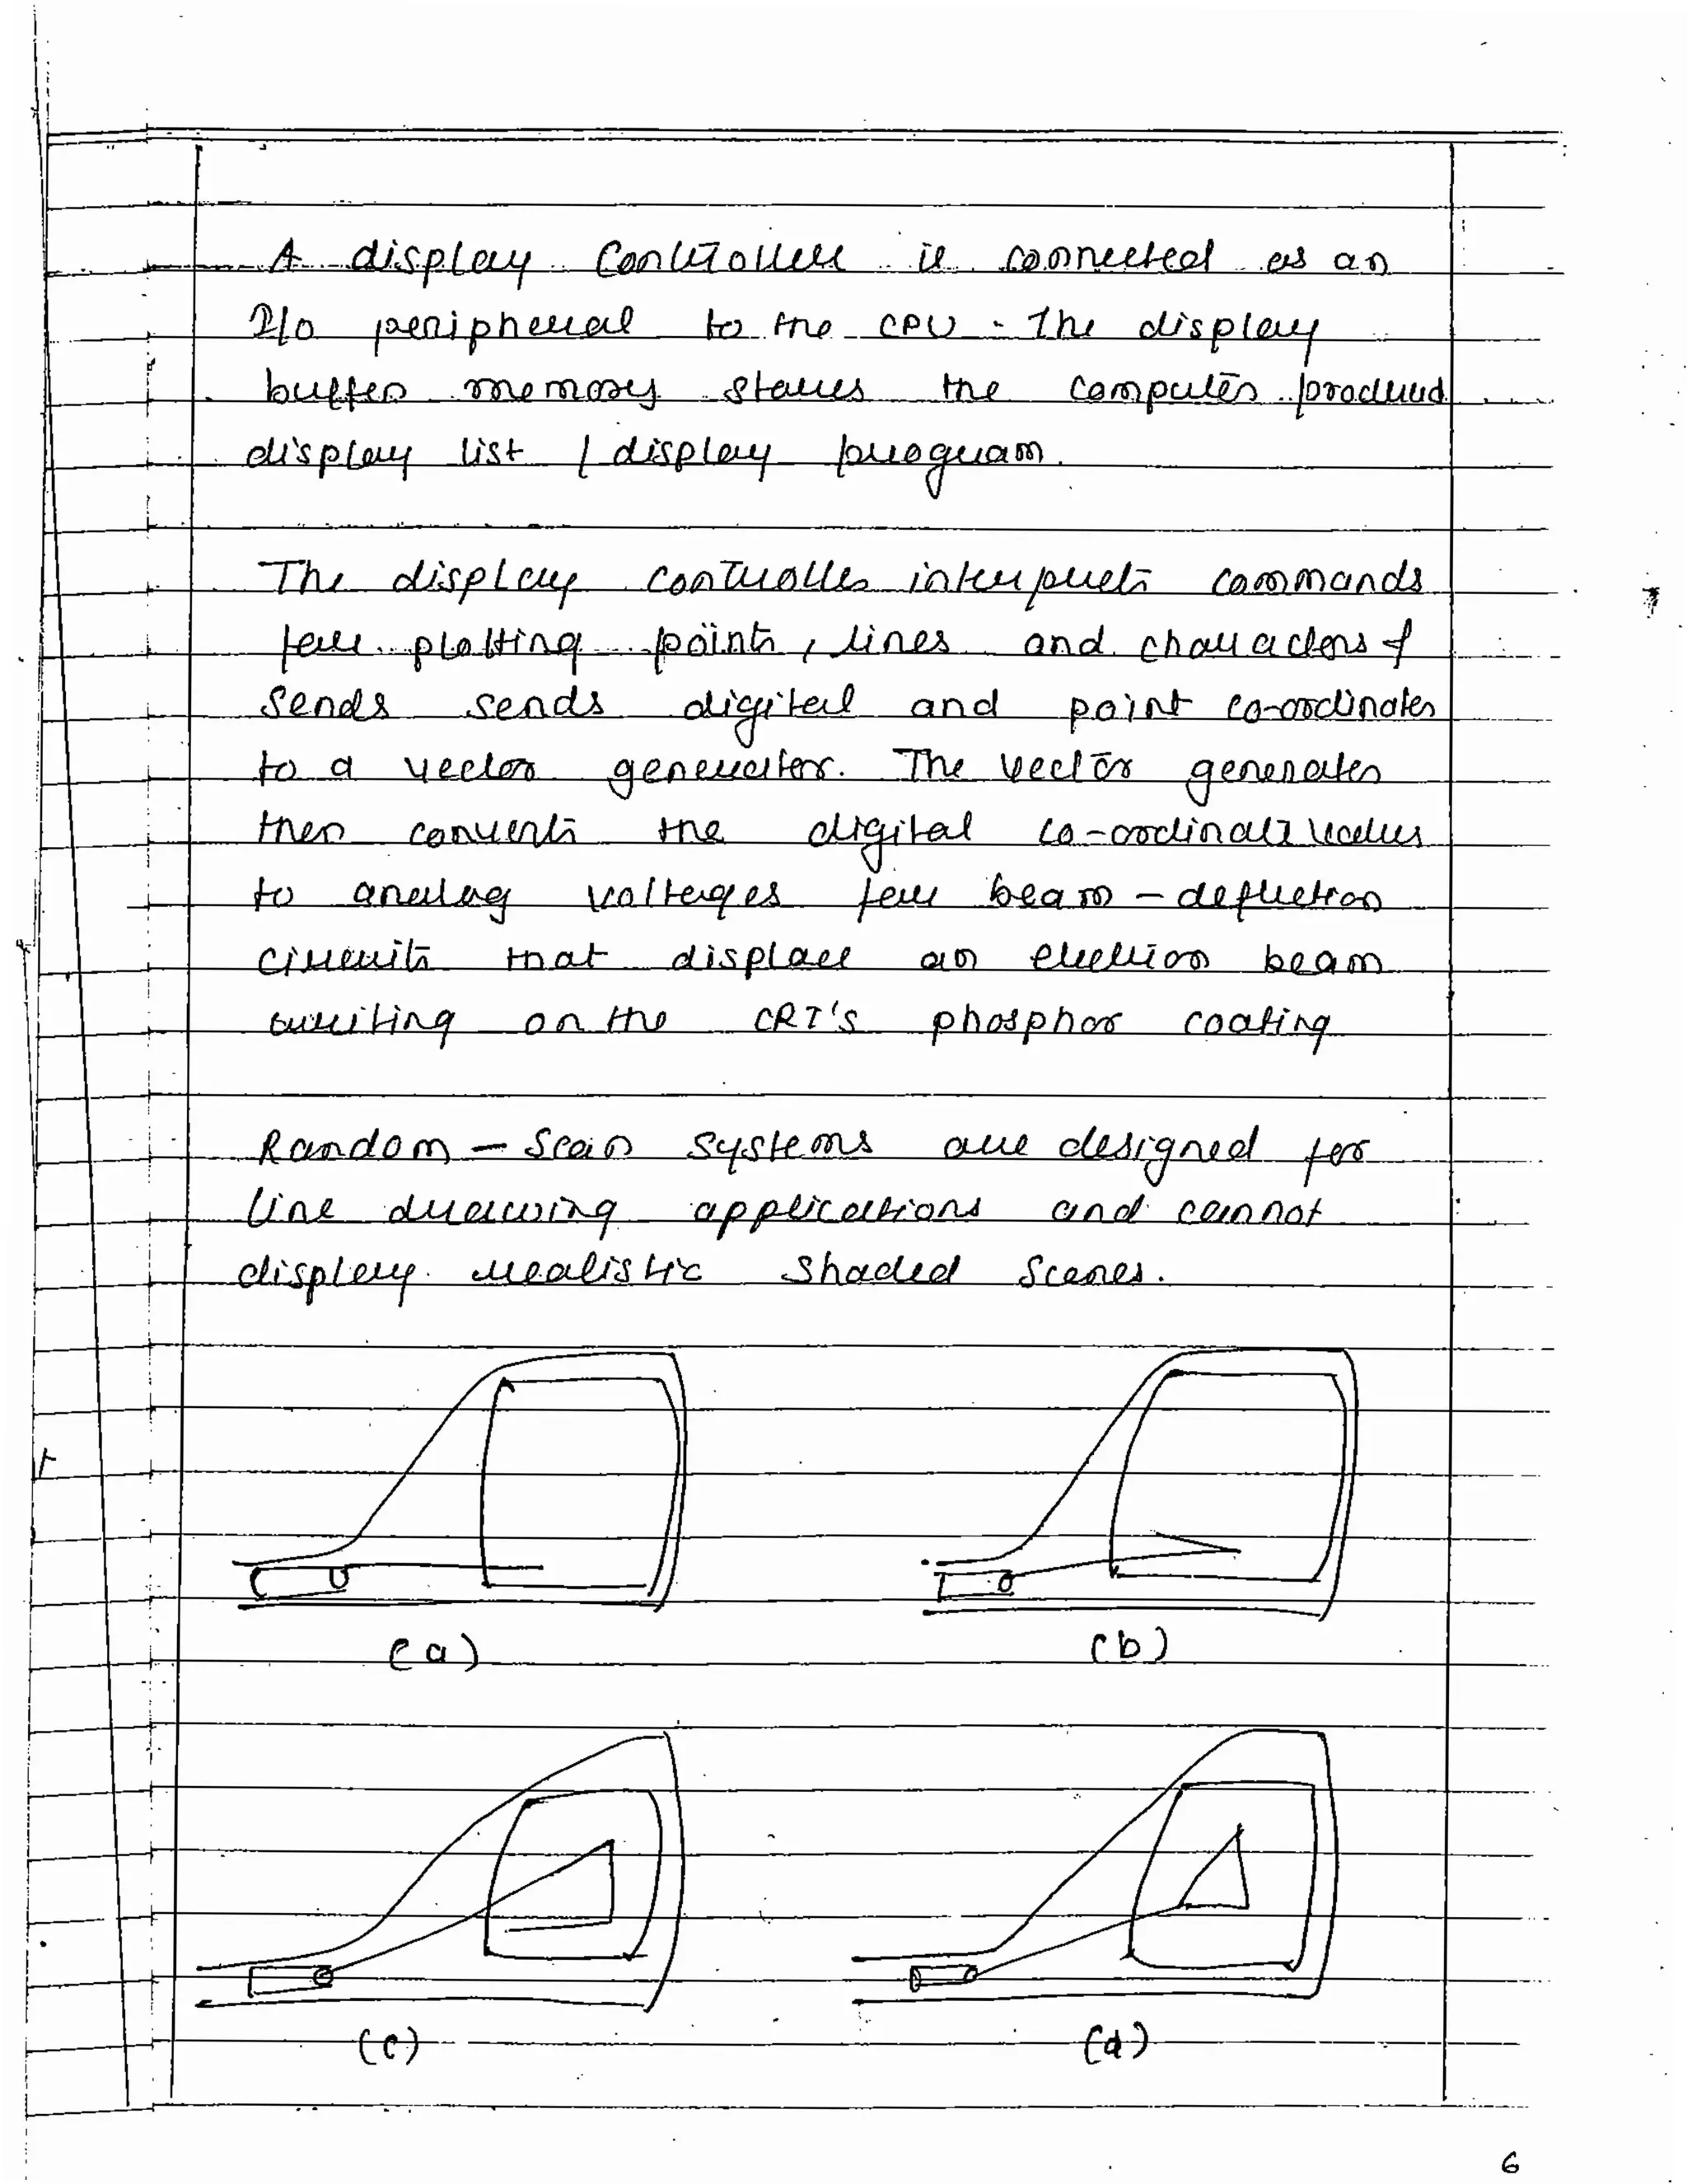 A display Controller is connected as an
I/o peripheral to the CPU. The display
buffer memory stores the computer produced
display list / display program.
The display controller interprets commands
for plotting points, lines and characters &
sends sends digital and point co-ordinates
to a vector generator. The vector generates
then converts the digital co-ordinate values
to analog voltages for beam - deflection
circuits that displace an electron beam
writing on the CRT's phosphor coating
Random - Scan systems are designed for
line drawing applications and cannot
display realistic shaded scenes.
(a)
(b)
(c)
(d)
6